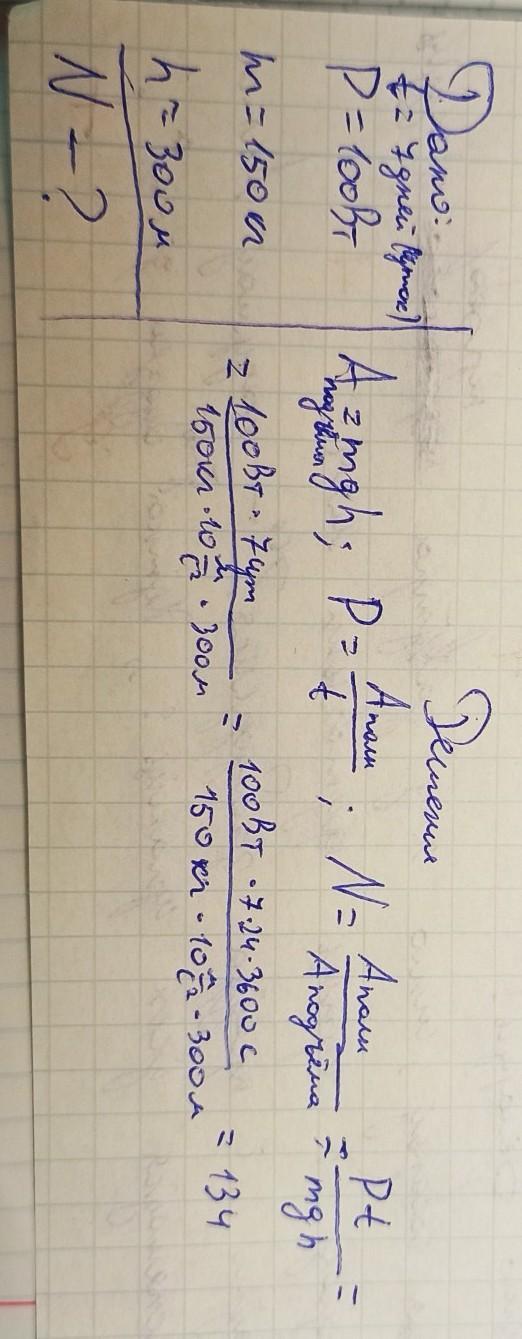 Дано:
t = 7 дней (суток)
P = 100Вт
m = 150 кг
h = 300 м
N - ?
Решения
Aподъёма = mgh; P = Aполн / t ; N = Aполн / Aподъёма = Pt / mgh =
= 100Вт · 7сут / 150кг · 10 м/с² · 300м = 100Вт · 7·24·3600с / 150кг · 10 м/с² · 300м = 134